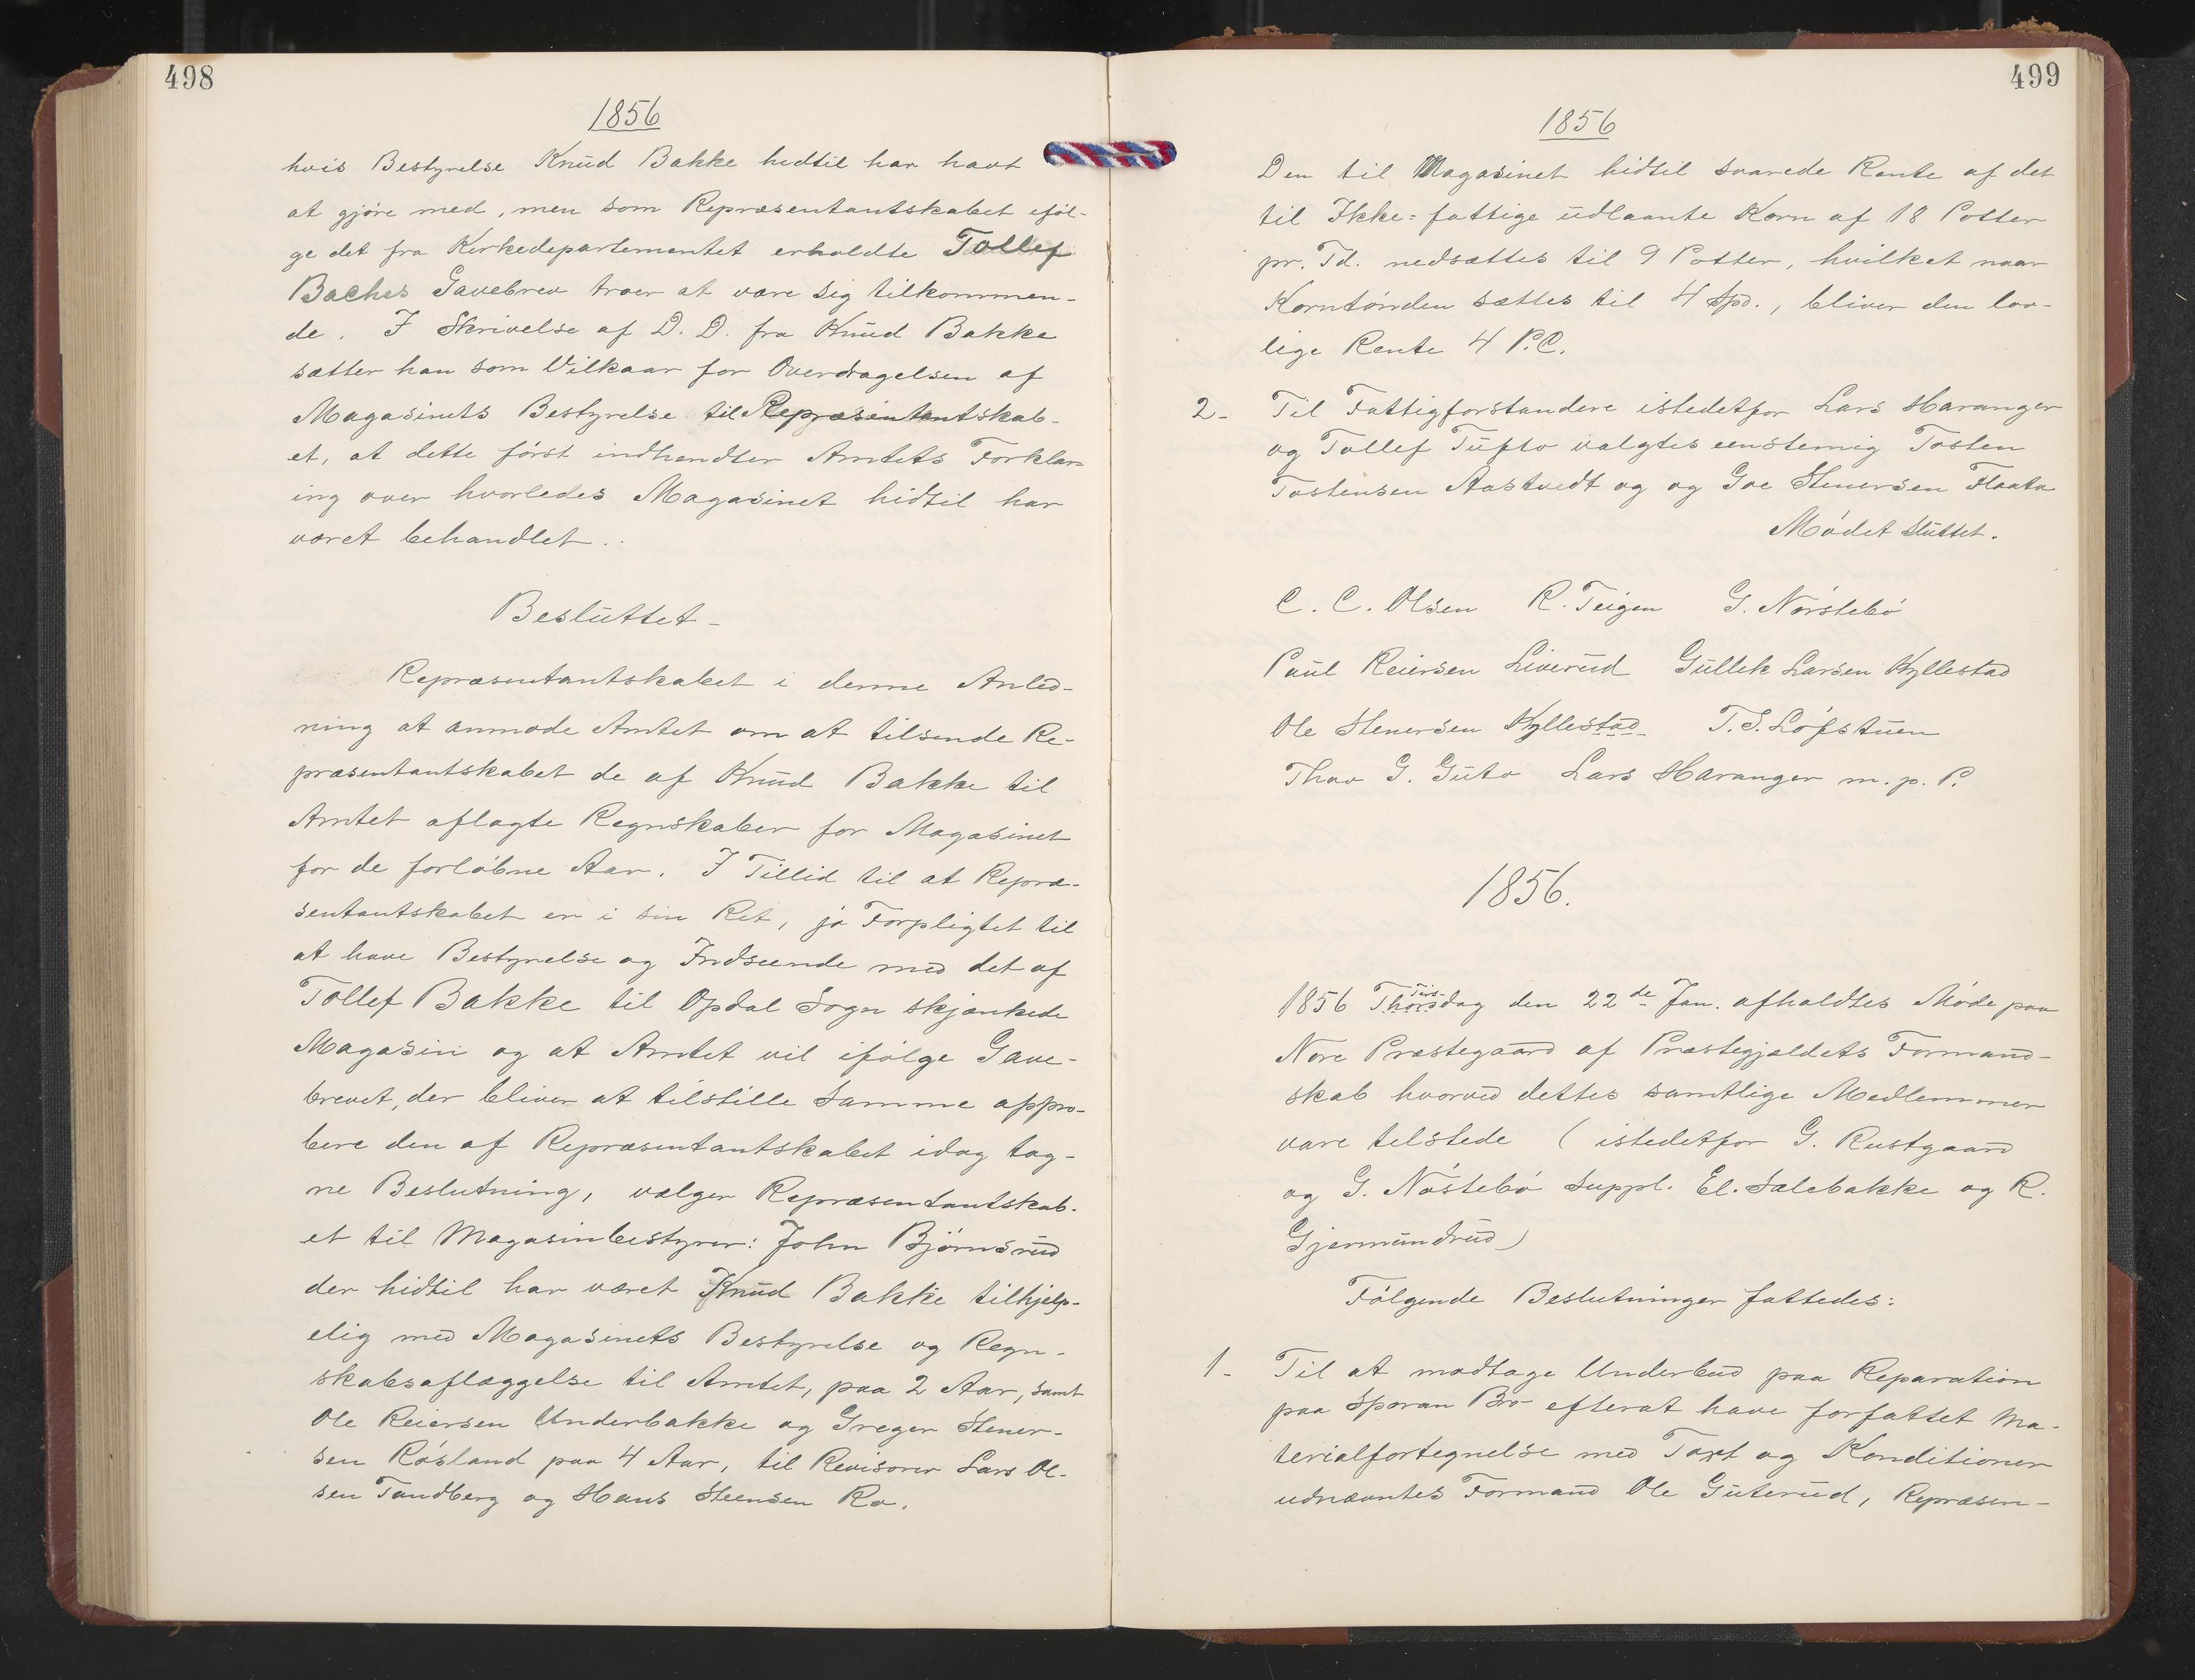 498
1856
hvis Bestyrelse Knud Bakke hidtil har havt
at gjøre med, men som Repræsentantskabet iføl-
ge det fra Kirkedepartementet erholdte Tollef
Baches Gavebrev troer at være sig tilkommen-
de. I Skrivelse af D. D. fra Knud Bakke
sætter han som Vilkaar for Overdragelsen af
Magasinets Bestyrelse til Repræsentantskab-
et, at dette først indhendter Amtets Forklar-
ing over hvorledes Magasinet hidtil har
været behandlet.
Besluttet-
Repræsentantskabet i denne Anled-
ning at anmode Amtet om at tilsende Re-
præsentantskabet de af Knud Bakke til
Amtet aflagte Regnskaber for Magasinet
for de forløbne Aar. I Tillid til at Repræ-
sentantskabet er i sin Ret, ja Forpligtet til
at have Bestyrelse og Indseende med det af
Tollef Bakke til Opdal Sogn skjænkede
Magasin og at Amtet vil ifølge Gave-
brevet, der bliver at tilstille Samme appro-
bere den af Repræsentantskabet idag tag-
ne Beslutning, vælger Repræsentantskab-
et til Magasinbestyrer: John Bjørnsrud
der hidtil har været Knud Bakke tilhjelp-
elig med Magasinets Bestyrelse og Regn-
skabsaflæggelse til Amtet, paa 2 Aar, samt
Ole Reiersen Underbakke og Greger Stener-
sen Røsland paa 4 Aar, til Revisorer Lars Ol-
sen Tandberg og Hans Steensen Ro.
499
1856
Den til Magasinet hidtil svarede Rente af det
til Ikke=fattige udlaante Korn af 18 Potter
pr. Td. nedsættes til 9 Potter, hvilket naar
Korntønden sættes til 4 Spd., bliver den lov-
lige Rente 4 P.C.
2- Til Fattigforstandere istedetfor Lars Haranger
og Tollef Tufto valgtes eenstemig Tosten
Tostensen Aastvedt og og Goe Stenersen Flaata
Mødet sluttet.
C. C. Olsen R. Teigen G. Nørstebø
Paul Reiersen Liverud Gullek Larsen Kyllestad
Ole Stenersen Kyllestad T. S. Løfstuen
Thov G. Guto Lars Haranger m. p. P.
1856.
Tirs-
1856 Thorsdag den 22de Jan. afholdtes Møde paa
Nore Præstegaard af Præstegjældets Formand-
skab hvorved dettes samtlige Medlemmer
vare tilstede (istedetfor G. Rustgaard
og G. Nøstebø Suppl. El. Sælebakke og R.
Gjermundrud)
Følgende Beslutninger fattedes:
1- Til at modtage Underbud paa Reparation
paa Sporan Bro efterat have forfattet Ma-
terialfortegnelse med Taxt og Konditioner
udnævntes Formand Ole Guterud, Repræsen-